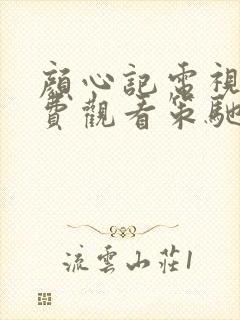 顔心記電視
費觀看策馳
流雲山莊1